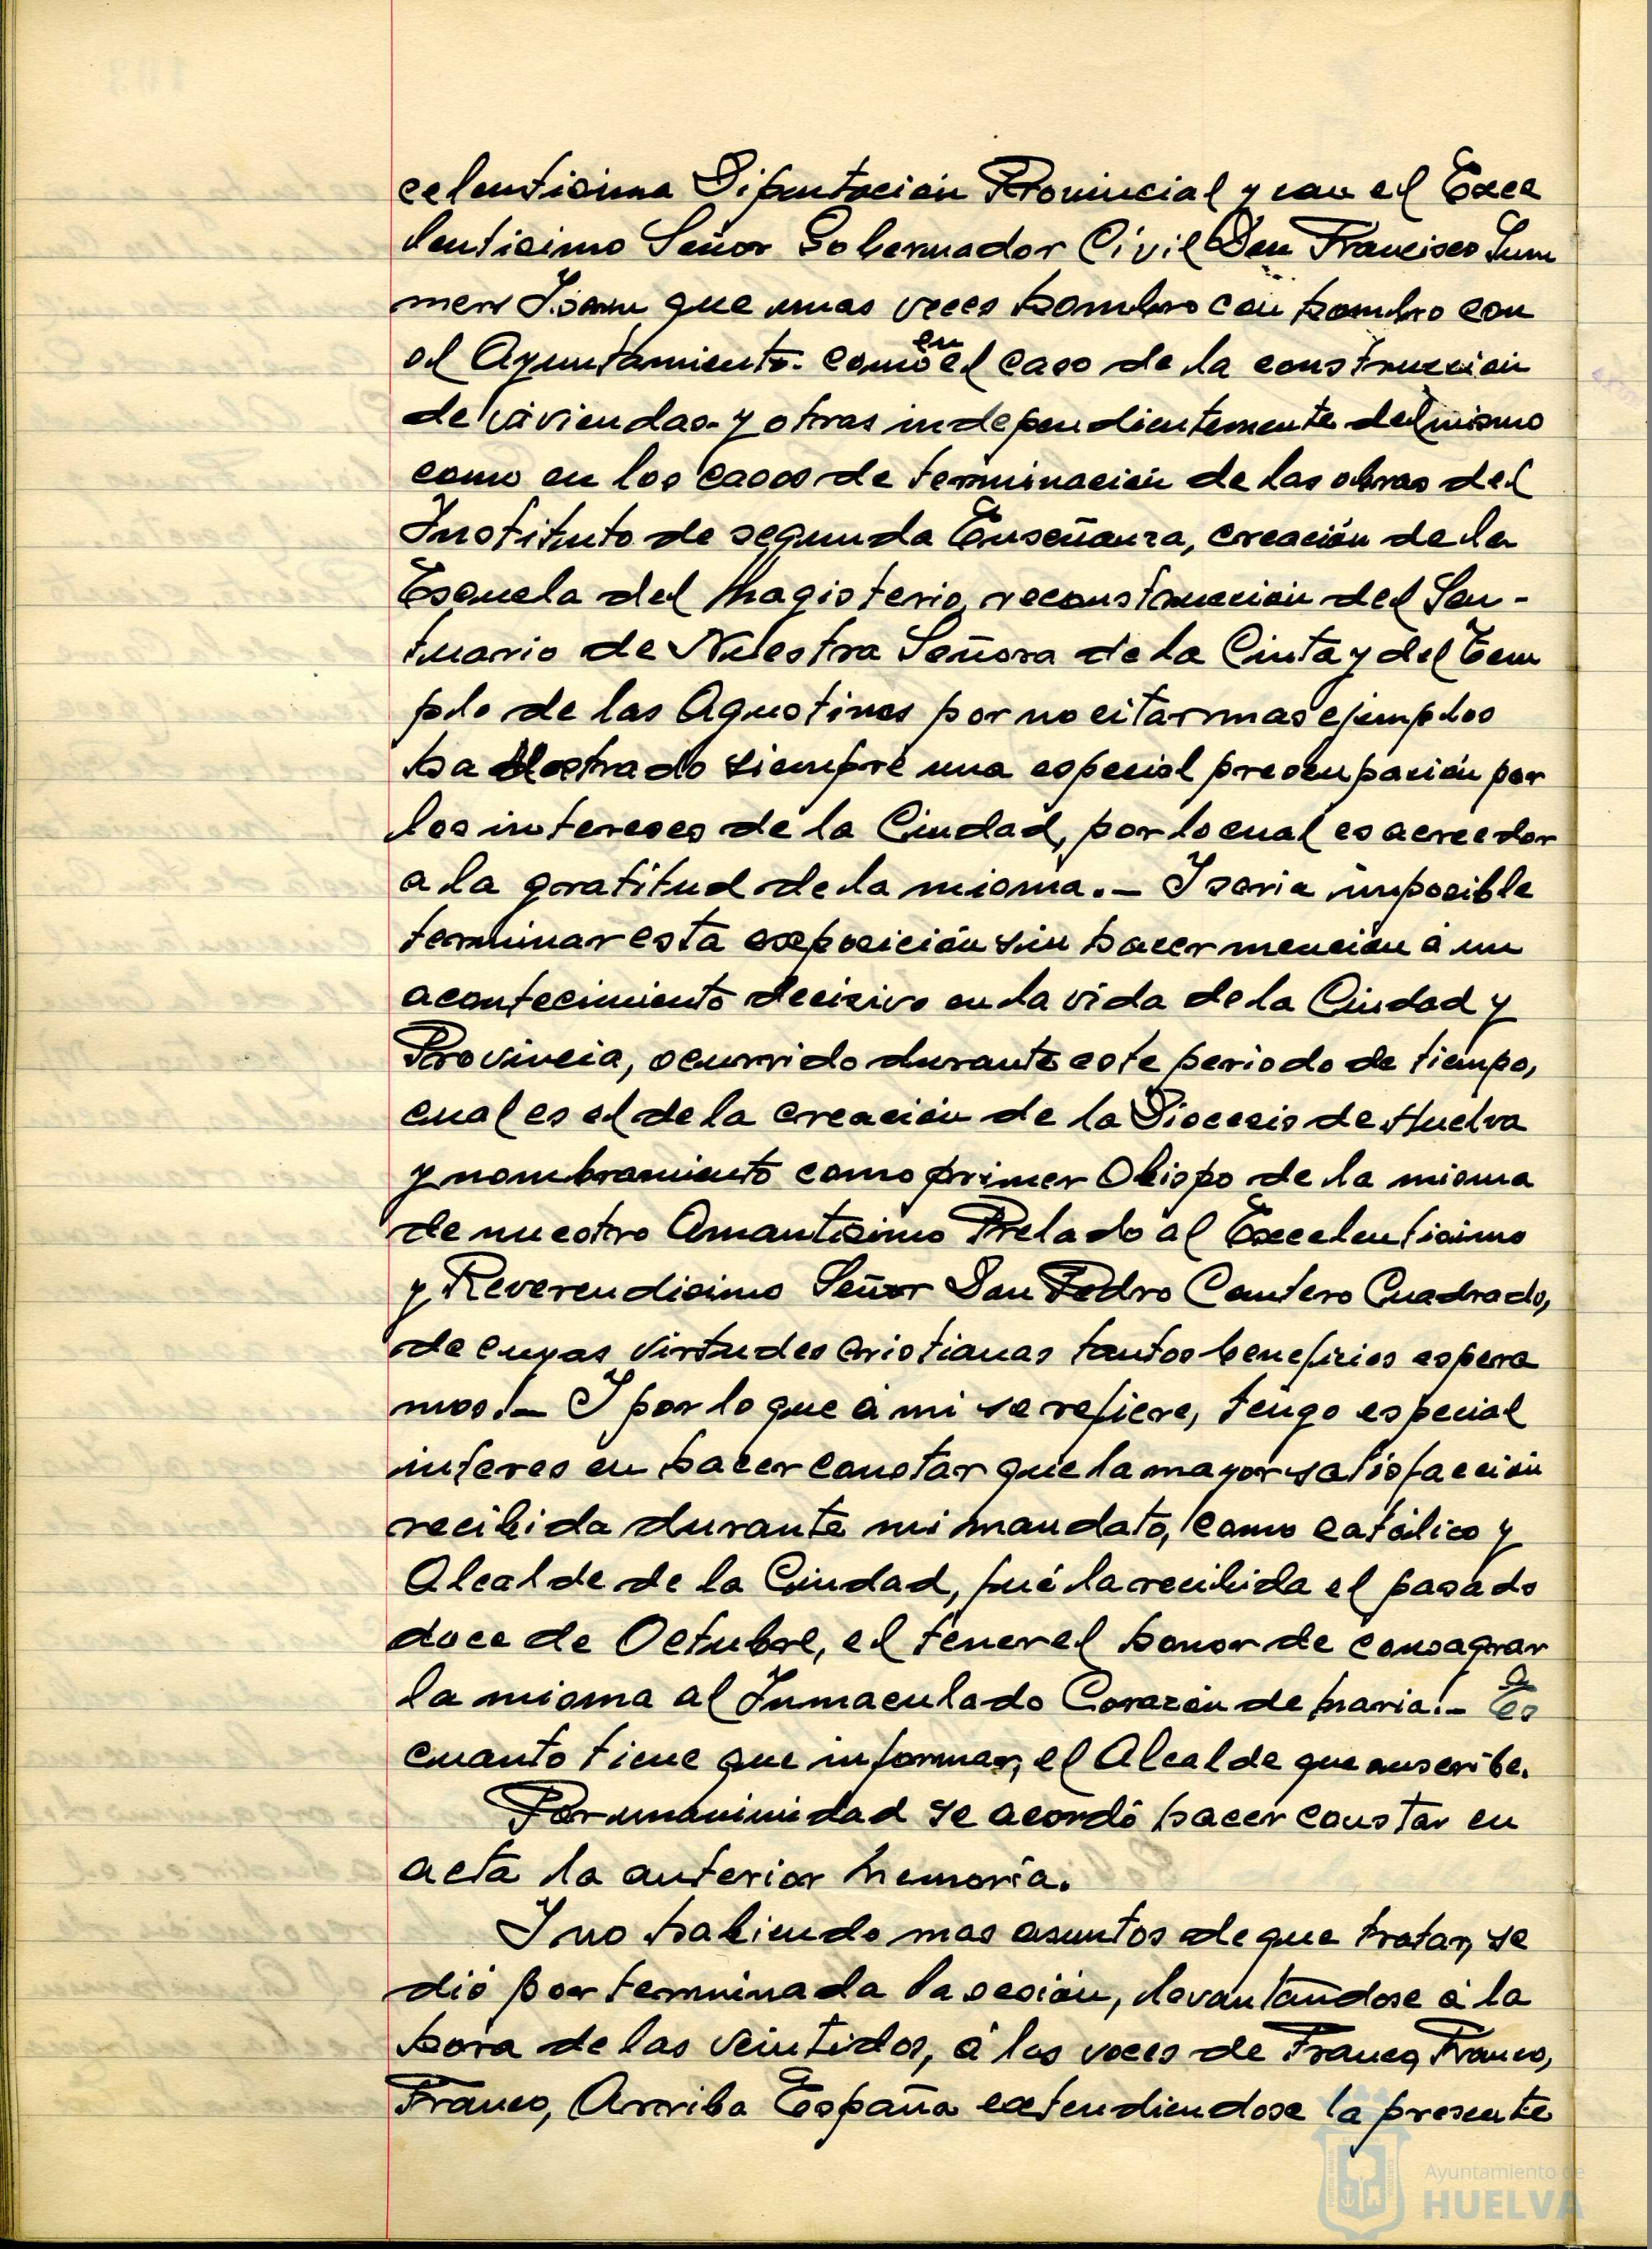 celentisima Diputación Provincial y con el Exce
lentisimo Señor Gobernador Civil Don Francisco Sum
mers Isern que unas veces hombro con hombro con
el Ayuntamiento. como en el caso de la construccion
de viviendas- y otras independientemente del mismo
como en los casos de terminación de las obras del
Instituto de segunda Enseñanza, creación de la
Escuela del Magisterio, reconstruccion del San-
tuario de Nuestra Señora de la Cinta y del Tem
plo de las Agustinas por no citar mas ejemplos
ha mostrado siempre una especial preocupación por
los intereses de la Ciudad, por lo cual es acreedor
a la gratitud de la misma.- I seria imposible
terminar esta exposición sin hacer mención á un
acontecimiento decisivo en la vida de la Ciudad y
Provincia, ocurrido durante este periodo de tiempo,
cual es el de la creación de la Diocesis de Huelva
y nombramiento como primer Obispo de la misma
de nuestro Amantisimo Prelado al Excelentisimo
y Reverendisimo Señor Don Pedro Cantero Cuadrado,
de cuyas virtudes cristianas tantos beneficios espera
mos!- I por lo que á mi se refiere, tengo especial
interes en hacer constar que la mayor satisfacción
recibida durante mi mandato, como católico y
Alcalde de la Ciudad, fué la recibida el pasado
doce de Octubre, el tener el honor de consagrar
la misma al Inmaculado Corazón de maria!- Es
cuanto tiene que informar, el Alcalde que suscribe.
Por unanimidad se acordó hacer constar en
acta la anterior Memoria.
I no habiendo mas asuntos de que tratar, se
dió por terminada la sesión, levantandose á la
hora de las veintidos, á los voces de Franco, Franco,
Franco, Arriba España extendiendose la presente
Ayuntamiento de
HUELVA